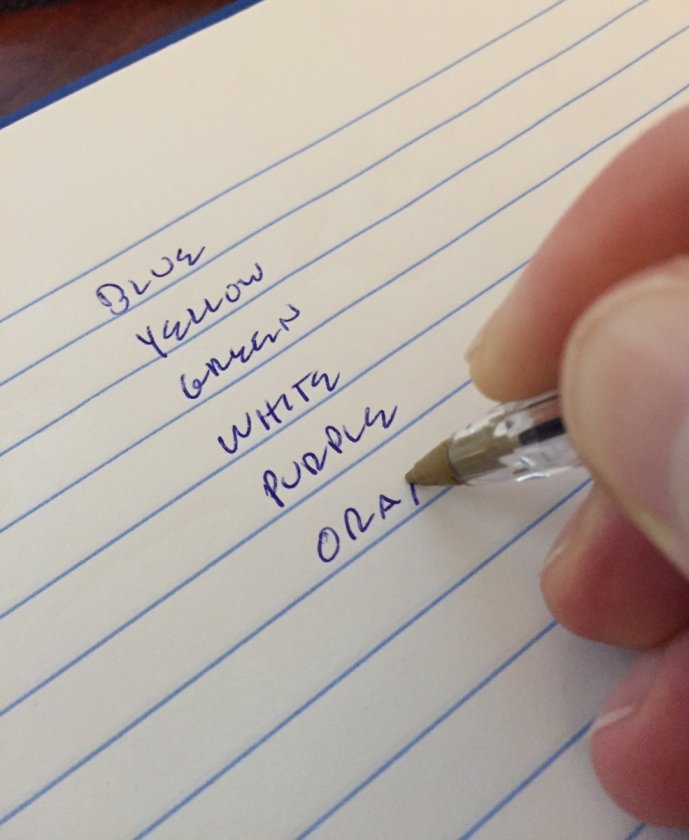 BLUE
YELLOW
GREEN
WHITE
PURPLE
ORA